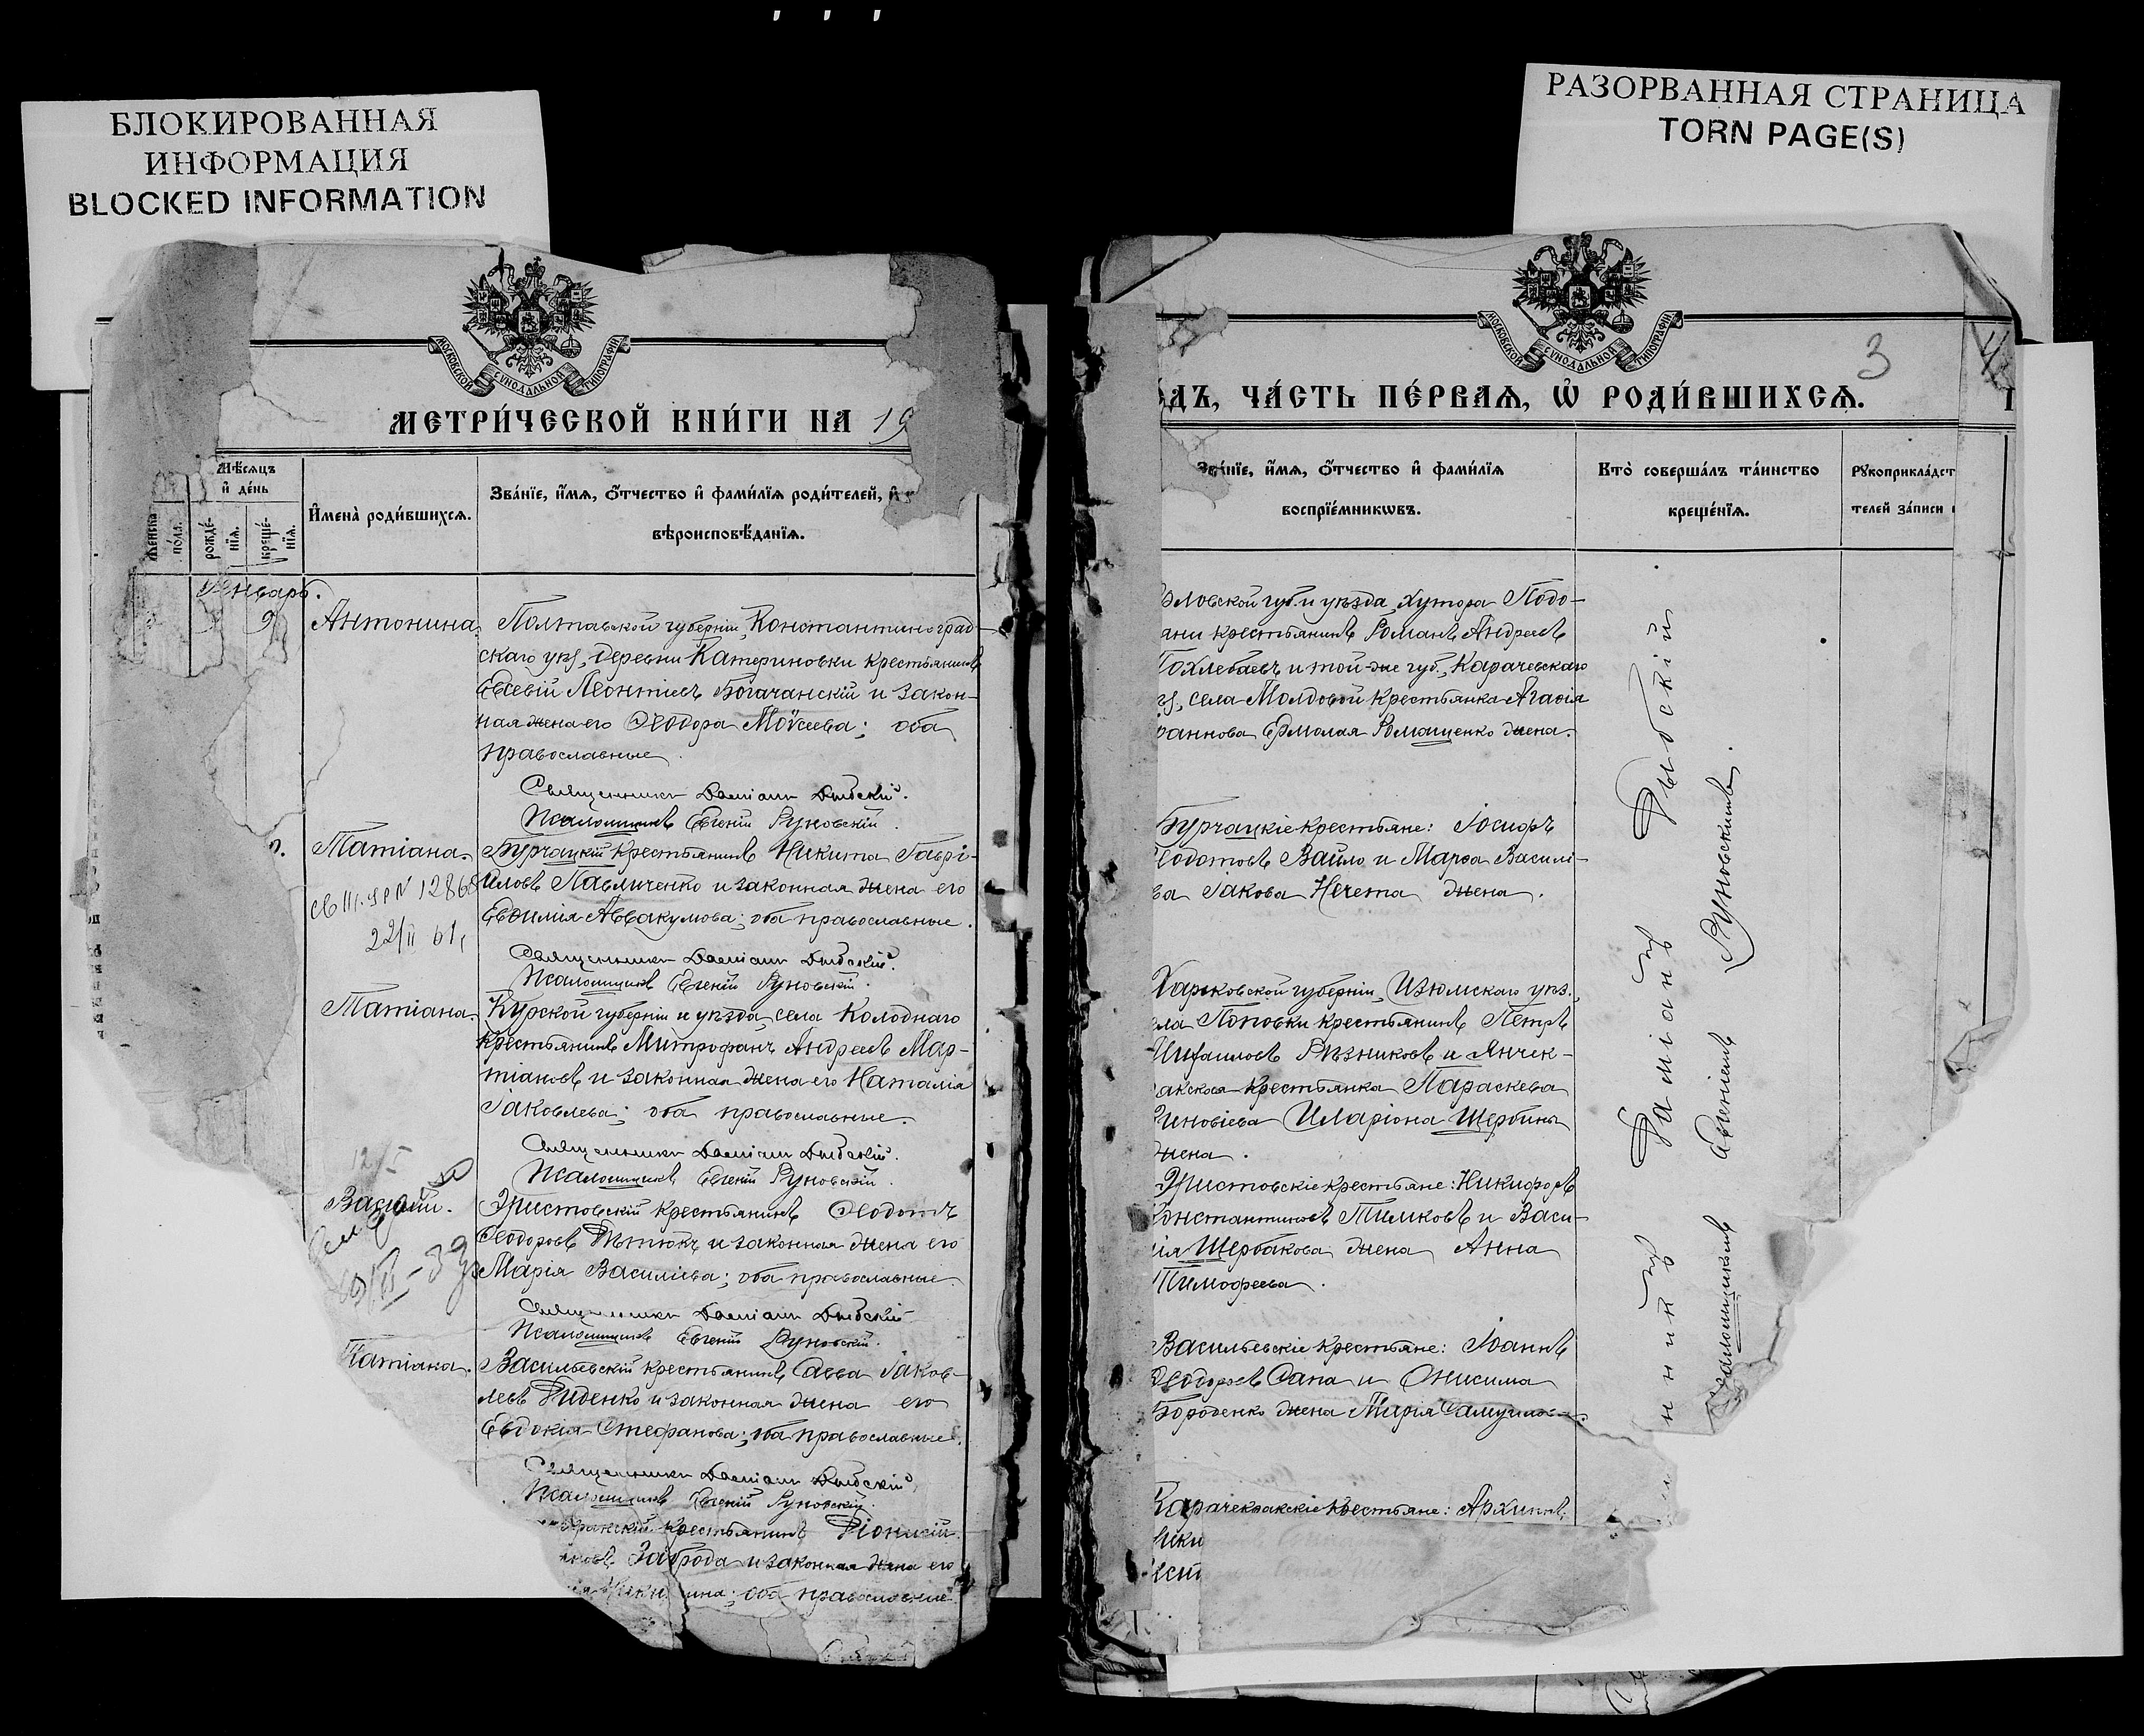 БЛОКИРОВАННАЯ
ИНФОРМАЦИЯ
BLOCKED INFORMATION
РАЗОРВАННАЯ СТРАНИЦА
TORN PAGE(S)
МОСКОВСКОЙ СУНОДАЛЬНОЙ ТИПОГРАФІИ
МЕТРИ́ЧЕСКОЙ КНИ́ГИ НА 19
Мѣсяцъ
и҆ де́нь
Же́нска
по́ла.
рожде́-
нїѧ.
креще́-
нїѧ.
И҆мена̀ роди́вшихсѧ.
Зва́нїе, и҆́мѧ, ѻ҆́тчество и҆ фами́лїѧ роди́телей, и҆
вѣроисповѣ́данїѧ.
Январь.
9
Антонина.
Полтавской губерніи, Константиноград-
скаго уѣз., деревни Катериновки крестьянинъ
Евсевій Леонтіевъ Богачанскій и закон-
ная жена его Ѳеодора Моѵсеева; оба
православные.
Священникъ Даміанъ Дыбскій.
Псаломщикъ Евгеній Руновскій.
Татіана.
22/II 61,
Бурчацкій крестьянинъ Никита Гаврі-
иловъ Павличенко и законная жена его
Евѳимія Аввакумова; оба православные.
Священникъ Даміанъ Дыбскій.
Псаломщикъ Евгеній Руновскій.
Татіана.
Курской губерніи и уѣзда, села Колоднаго
крестьянинъ Митрофанъ Андреевъ Мар-
тіановъ и законная жена его Наталія
Іаковлева; оба православные.
Священникъ Даміанъ Дыбскій.
Псаломщикъ Евгеній Руновскій.
Василій.
Эристовскій крестьянинъ Ѳеодотъ
Ѳеодоровъ и законная жена его
Марія Василіева; оба православные.
Священникъ Даміанъ Дыбскій
Псаломщикъ Евгеній Руновскій.
Татіана.
Васильевскій крестьянинъ Савва Іаков-
левъ Диденко и законная жена его
Евдокія Стефанова; оба православные.
Священникъ Даміанъ Дыбскій
Псаломщикъ Евгеній Руновскій.
крестьянинъ Діонисій
Заброда и законная жена его
оба православные
МОСКОВСКОЙ СУНОДАЛЬНОЙ ТИПОГРАФІИ
3
4
ДЪ, ЧА́СТЬ ПЕ́РВАѦ, Ѽ РОДИ́ВШИХСѦ.
Зва́нїе, и҆́мѧ, ѻ҆́тчество и҆ фами́лїѧ
воспрїе́мникѡвъ.
Кто̀ соверша́лъ та́инство
креще́нїѧ.
Рꙋкоприкла́дст
телей за́писи
рловской губ. и уѣзда, хутора Подо-
ани крестьянинъ Романъ Андреевъ
Похлебаевъ и той-же губ., Карачевскаго
уѣз., села Молдовой крестьянка Агаѳія
Іоаннова Ермолая Ромащенко жена.
Бурчацкіе крестьяне: Іосифъ
Ѳеодотовъ Вайло и Марѳа Василі-
ева Іакова Нечета жена.
Харьковской губерніи, Изюмскаго уѣз.,
ела Поповки крестьянинъ Петръ
Рѣзниковъ и Янчек-
ракская крестьянка Параскева
Зиновіева Иларіона Щербины
жена.
Эристовскіе крестьяне: Никифоръ
Константиновъ Тимковъ и Васи-
лія Щербакова жена Анна
Тимофеева.
Васильевскіе крестьяне: Іоаннъ
Ѳеодоровъ Сапа и Онисима
Бороденко жена Марія Самуилов-
Карачекракскіе крестьяне: Архипъ
ики
ест
нникъ Даміанъ Дыбскій.
Псаломщикъ Евгеній Руновскій.